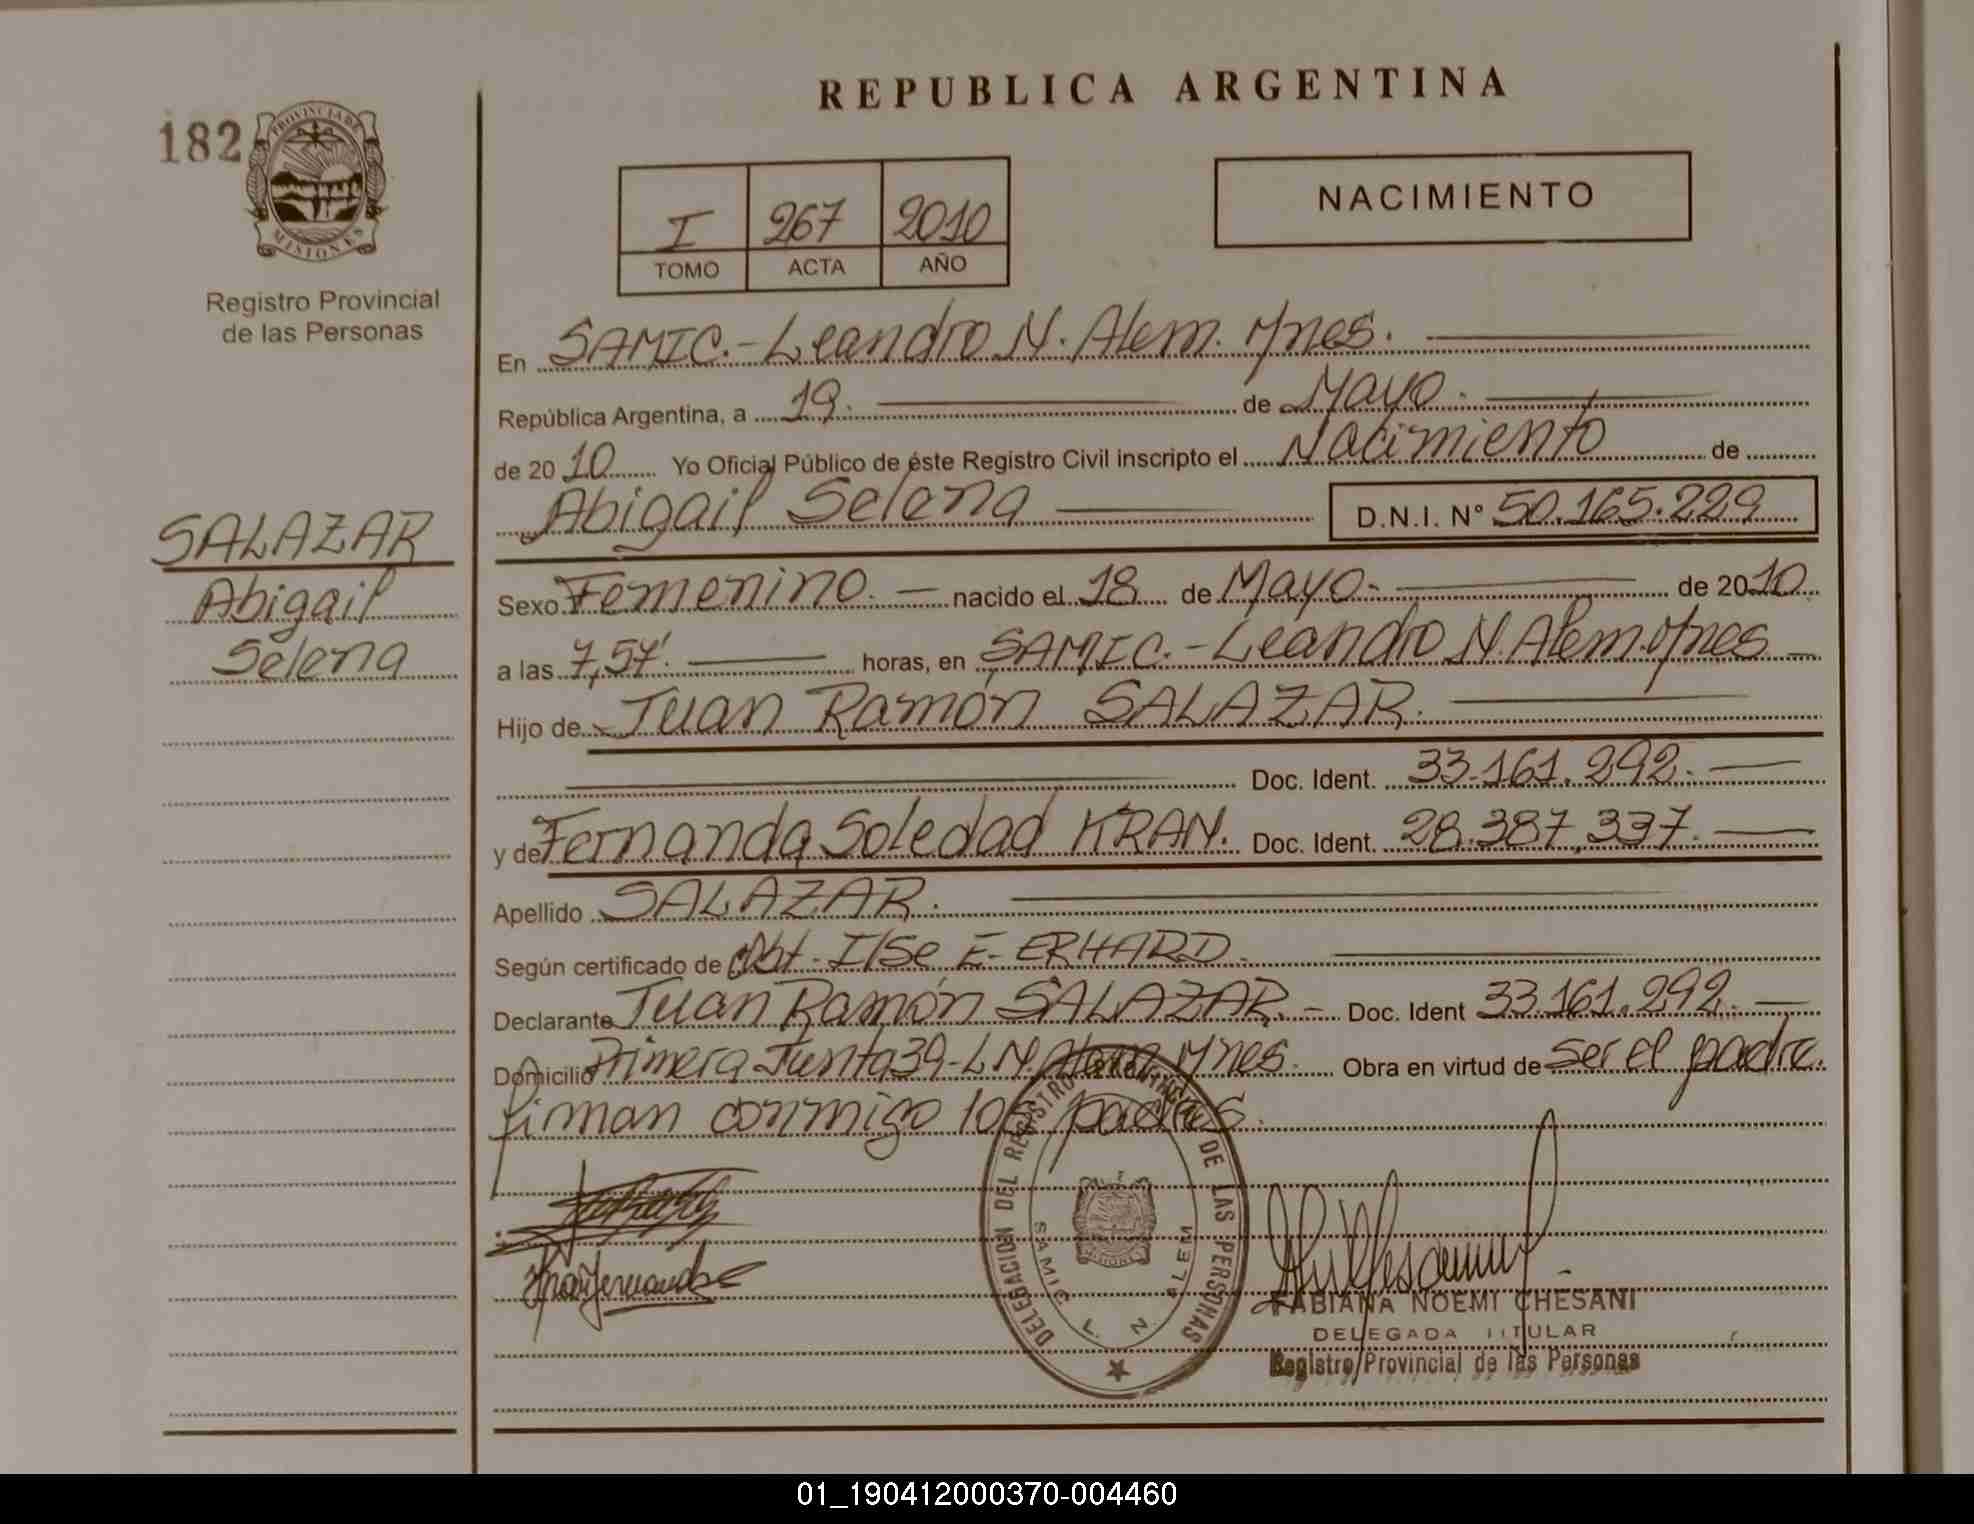 REPUBLICA ARGENTINA
182
PROVINCIA DE
MISIONES
Registro Provincial
de las Personas
I 267 2010
TOMO ACTA AÑO
NACIMIENTO
SALAZAR
Abigail
Selena
En SAMIC.-Leandro N. Alem. Mnes.
República Argentina, a 19. de Mayo.
de 2010 Yo Oficial Público de éste Registro Civil inscripto el Nacimiento de
Abigail Selena D.N.I. N° 50.165.229
Sexo Femenino. nacido el 18 de Mayo. de 2010.
a las 7,57'. horas, en SAMIC.-Leandro N. Alem. Mnes
Hijo de Juan Ramón SALAZAR.
Doc. Ident. 33.161.292.
y de Fernanda Soledad KRAN. Doc. Ident. 28.387.337.
Apellido SALAZAR.
Según certificado de Obt. Ilse E. ERHARD.
Declarante Juan Ramón SALAZAR. Doc. Ident 33.161.292.
Domicilio Primera Junta 39-L.N. Alem Mnes. Obra en virtud de Ser el padre.
firman conmigo los padres.
DELEGACION DEL REGISTRO PROVINCIAL DE LAS PERSONAS
SAMIC L. N. ALEM
FABIANA NOEMI CHESANI
DELEGADA TITULAR
Registro Provincial de las Personas
01_190412000370-004460